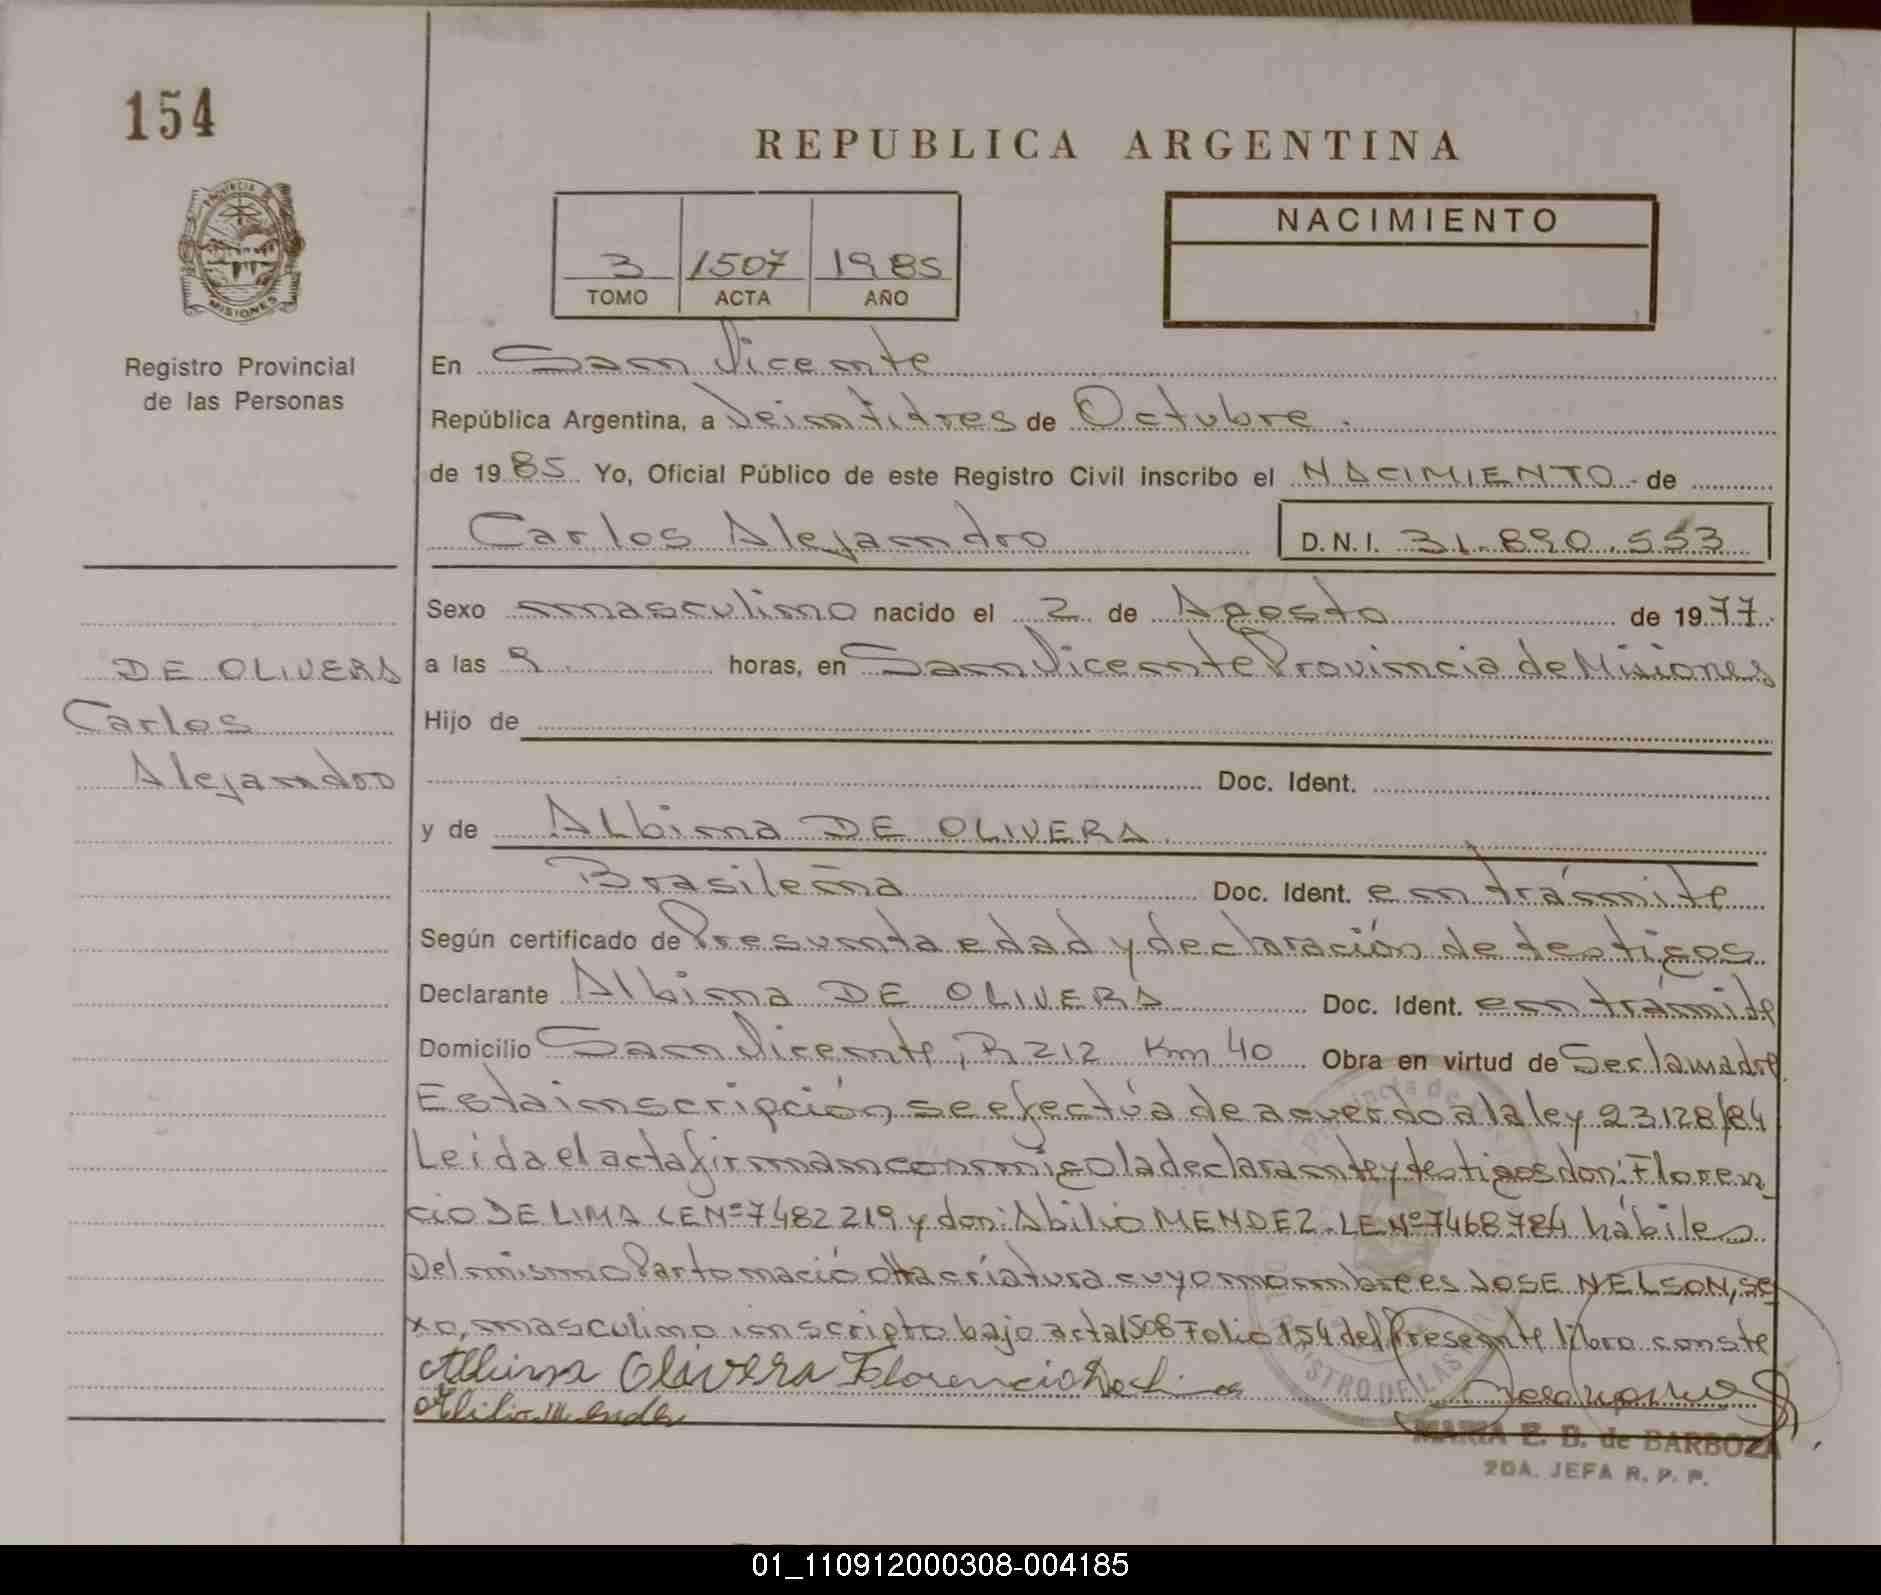 154
REPUBLICA ARGENTINA
NACIMIENTO
3 1507 1985
TOMO ACTA AÑO
PROVINCIA DE
MISIONES
Registro Provincial
de las Personas
En San Vicente
República Argentina, a Veintitres de Octubre.
de 1985 Yo, Oficial Público de este Registro Civil inscribo el NACIMIENTO de
Carlos Alejandro D.N.I. 31.890.553
Sexo masculino nacido el 2 de Agosto de 1977.
DE OLIVERA
Carlos
Alejandro
a las 9 horas, en San Vicente Provincia de Misiones
Hijo de
Doc. Ident.
y de Albina DE OLIVERA.
Brasileña Doc. Ident. en trámite
Según certificado de Presunta edad y declaración de testigos.
Declarante Albina DE OLIVERA Doc. Ident. en trámite
Domicilio San Vicente, R 212 Km 40 Obra en virtud de Ser la madre.
Esta inscripción, se efectúa de acuerdo a la ley 23.128/84
Leida el acta firman conmigo la declarante y testigos don: Floren
cio DE LIMA LE Nº 7482219 y don: Abilio MENDEZ. LE Nº 7468784 hábiles
Del mismo Parto nació otra criatura cuyo nombre es JOSE NELSON, se
xo, masculino inscripto bajo acta 1508 Folio 154 del Presente libro conste
Albina Olivera Florencio De Lima
Abilio Mendez
MARIA E. B. de BARBOZA
2DA. JEFA R. P. P.
01_110912000308-004185